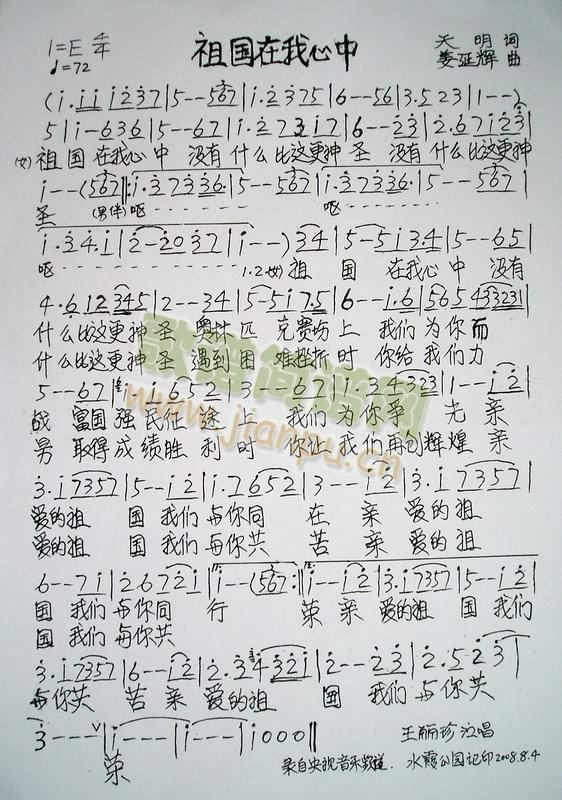 1=E 4/4
♩=72
祖国在我心中
天明 词
姜延辉 曲
(i·ii i237|5--567|i·2375|6--56|3·523|1--)
5|i-636|5--67|i·273i7|6--23|2·67i23|
(女)祖 国 在我心中 没有 什么比这更神 圣 没有 什么比这更神
i--(567‖:i·37336·|5--567|i·37336·|5--567|
圣 (男伴)呕 呕
i·34·i|2-2037|i--)34|5-5i34|5--65|
呕 1.2.(女)祖 国 在我心中 没有
4·612345|2--34|5-5i75|6--i·6|565433231|
什么比这更神 圣 奥林匹 克赛场上 我们 为你而
什么比这更神 圣 遇到困 难挫折时 你给 我们力
5--67|i·6652|3--67|i·34323|1--i2|
战 富国 强民征途上 我们 为你争 光 亲
男 取得 成绩胜利时 你让 我们再创辉煌 亲
3·i7357|5--i2|i·7652|3--i2|3·i7357|
爱的祖 国 我们 与你同 在 亲 爱的祖
爱的祖 国 我们 与你共 苦 亲 爱的祖
6--7i|2672i|i--(567:‖i--i2|3·i7357|5--i2|
国 我们 与你同 行 荣 亲 爱的祖 国 我们
国 我们 与你共
3·i7357|6--i2|2·3432i|2--23|2·523|
与你共 苦 亲 爱的祖 国 我们 与你共
3---ⱽ|i---|i---|i000‖
荣
王丽珍 泣唱
录自央视音乐频道. 水霞公园记印2008.8.4
歌谱简谱网
www.jianpu.cn